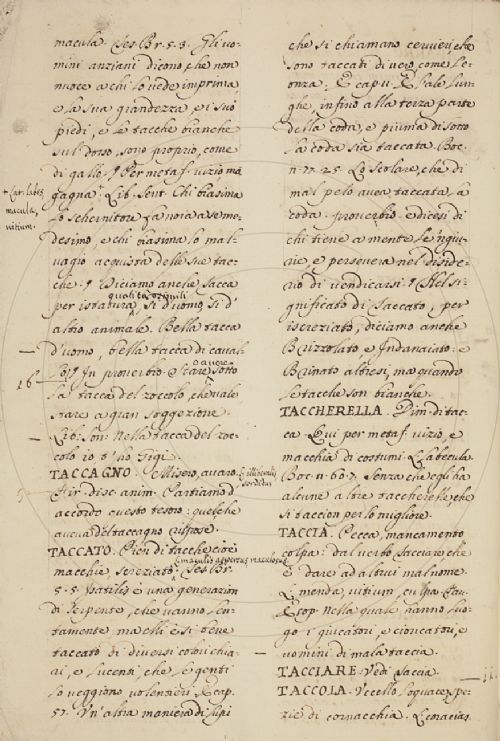 macula. Tes. Br. 5. 3. Gli uo-
mini anziani dicono, che non
nuoce a chi lo vede imprima,
e la sua grandezza, e i suo'
piedi, e le tacche bianche
sul dorso, sono proprio, come
di gallo. ¶ Per metaf. vizio, ma
gagna + Lib. Sent. Chi biasima
+ Lat. labes,
macula,
vitium.
lo schernitore fa noia a se me-
desimo, e chi biasima lo mal-
vagio acquista delle sue tac-
che. ¶ Diciamo anche tacca
per istatura, si d'uomo, si d'
altro animale. Bella tacca
d'uomo, bella tacca di caval-
lo. ¶ In proverbio. o stare sotto
16
la tacca del zoccolo, che vale
stare a gran soggezione.
Lib. Son. Nella tacca del zoc-
colo io t'ho Gigi.
TACCAGNO. Misero, avaro.
Fir. disc. anim. Partiamo d'
accordo questo tesoro: quelche
aveva del taccagno rispose.
TACCATO. Pien di tacche, cioè
L. maculis aspersus, maculosus
macchie, screziato. Tes. Br.
5. 5. Isatilis è una generazion
di serpente, che vanno len-
tamente, ma elli è si bene
taccato di diversi colori chia-
ri, e lucenti, che le genti
lo veggiono volentieri. E cap.
57. Un'altra maniera di lupi
che si chiamano cervieri, che
sono taccati di nero, come le-
onza: E cap. u. E l'ale lun-
ghe, infino alla terza parte
della coda, e piuma di sotto
la coda sia taccata. Boc.
n. 77. 25. Lo scolare, che di
mal pelo avea taccata la
coda. proverbio, e dicesi di
chi tiene a mente le 'ngiu-
rie, e persevera nel deside-
rio di vendicarsi. ¶ Nel si-
gnificato di Taccato, per
iscreziato, diciamo anche
Brizzolato, e Indanaiato: e
Brinato altresi, ma quando
le tacche son bianche.
TACCHERELLA. Dim. di tac-
ca. Qui per metaf. vizio, e
macchia di costumi. L. labecula.
Boc. n. 60. 7. Senza che egli ha
alcune altre taccherelle, che
si taccion per lo migliore.
TACCIA. Pecca, mancamento
colpa: dal verbo Tacciare, che
È dare ad altrui mal nome.
L. menda, vitium, culpa. Fav.
Esop. Nella quale hanno luo-
go i giucatori, e cioncatori, e
uomini di mala taccia.
TACCIARE. Vedi Taccia.
TACCOLA. Uccello loquace, spe-
zie di cornacchia. L. coracias.